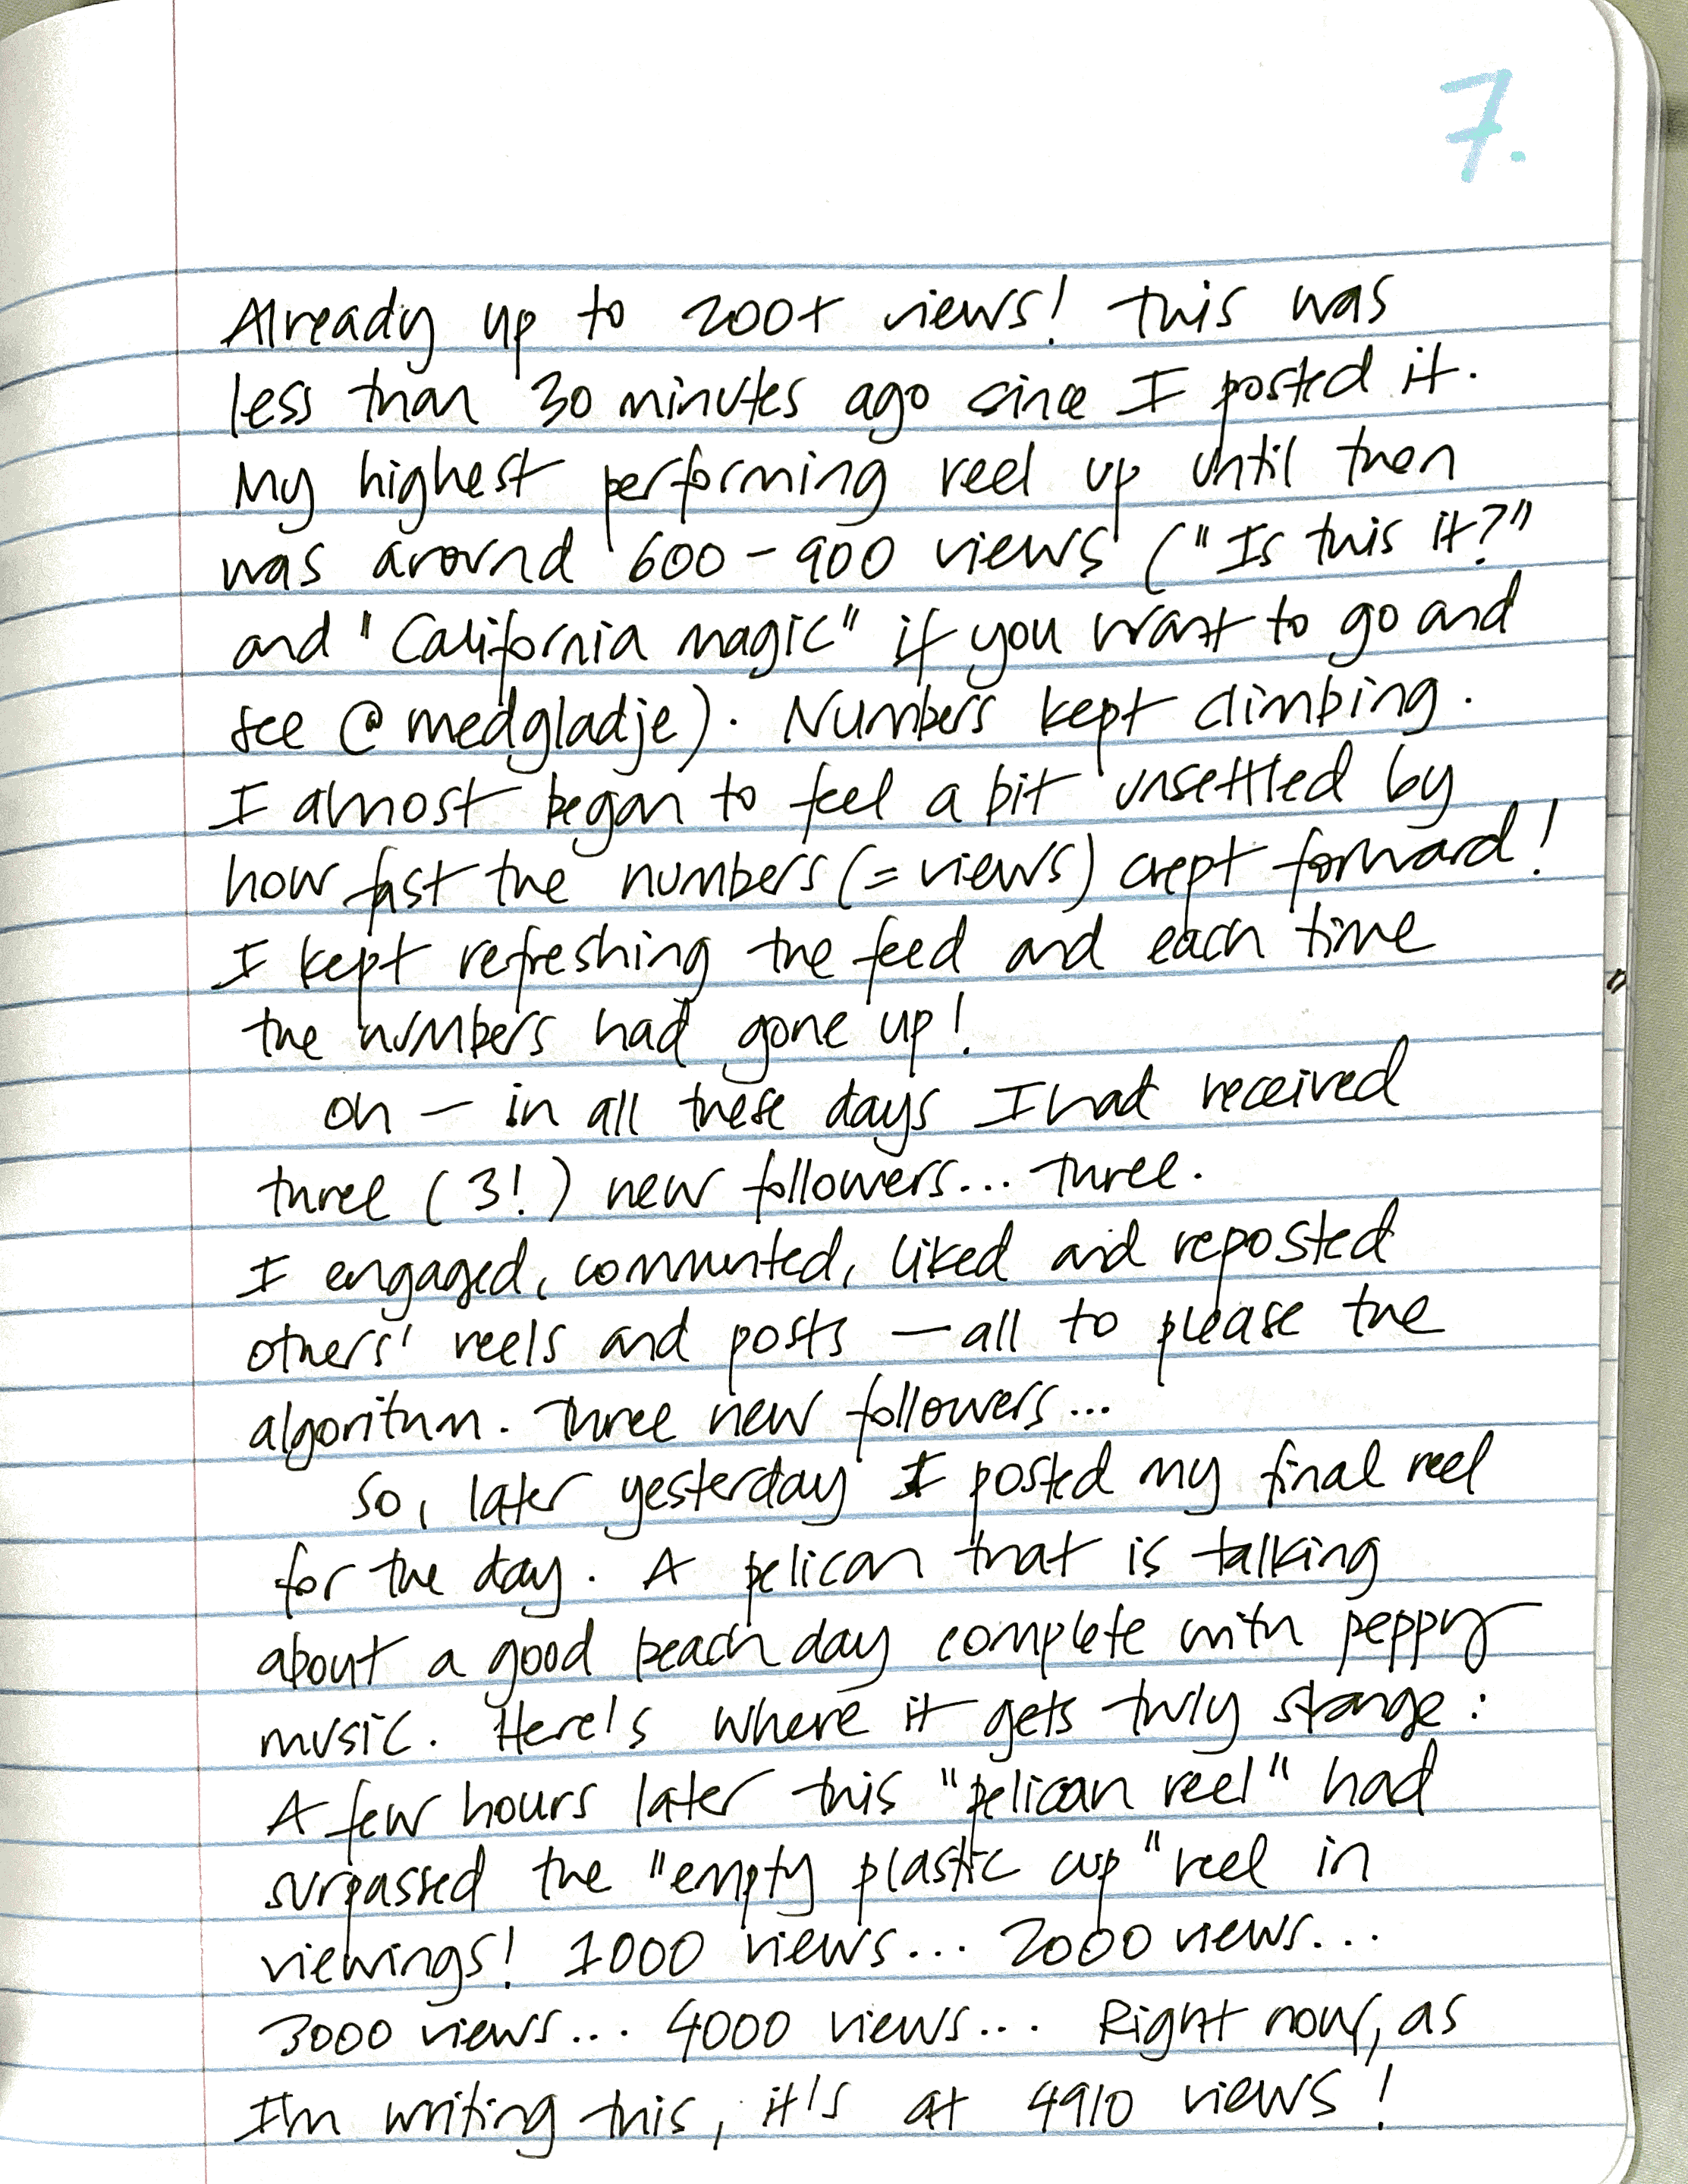 7.
Already up to 200+ views! This was
less than 30 minutes ago since I posted it.
My highest performing reel up until then
was around 600-900 views ("Is this it?"
and "California magic" if you want to go and
see @medgladje). Numbers kept climbing.
I almost began to feel a bit unsettled by
how fast the numbers (= views) crept forward!
I kept refreshing the feed and each time
the numbers had gone up!
Oh — in all these days I had received
three (3!) new followers... Three.
I engaged, commented, liked and reposted
others' reels and posts — all to please the
algorithm. Three new followers...
So, later yesterday I posted my final reel
for the day. A pelican that is talking
about a good beach day complete with peppy
music. Here's where it gets truly strange:
A few hours later this "pelican reel" had
surpassed the "empty plastic cup" reel in
viewings! 1000 views... 2000 views...
3000 views... 4000 views... Right now, as
I'm writing this, it's at 4910 views!